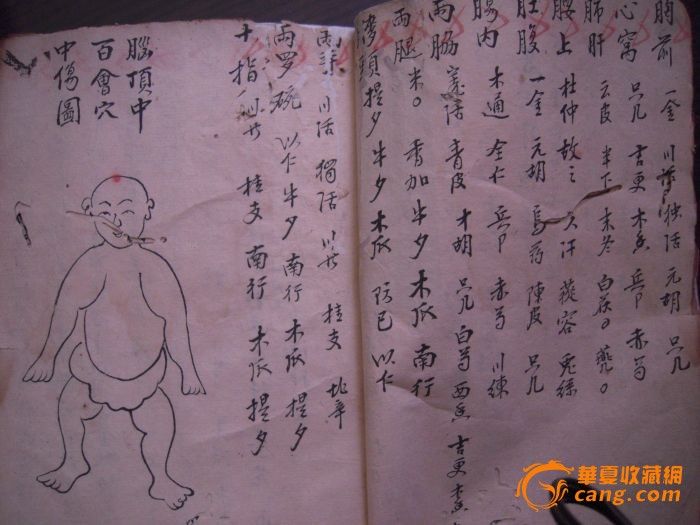 胸前 一金 川芎 独活 元胡 只几
心窝 只几 吉更 木香 兵卩 赤芍
肺肝 云皮 半下 末冬 白茯。
腰上 杜仲 故之 大汗 蓯容 兎絲
肚腹 一金 元胡 烏药 陳皮 只几
腸内 木通 全仁 兵卩 赤芍 川練
兩脇 活 青皮 才胡 只几 白芍 西香 吉更 木香
兩腿 米。 香加 牛夕 木瓜 南行
湾頭 提夕 牛夕 木瓜 防已 以仁
川活 獨活 以共 桂支 北辛
兩罗碗 以仁 牛夕 南行 木瓜 提夕
十指 以共 桂支 南行 木瓜 提夕
腦頂中
百會穴
中傷圖
華夏收藏網
cang.com